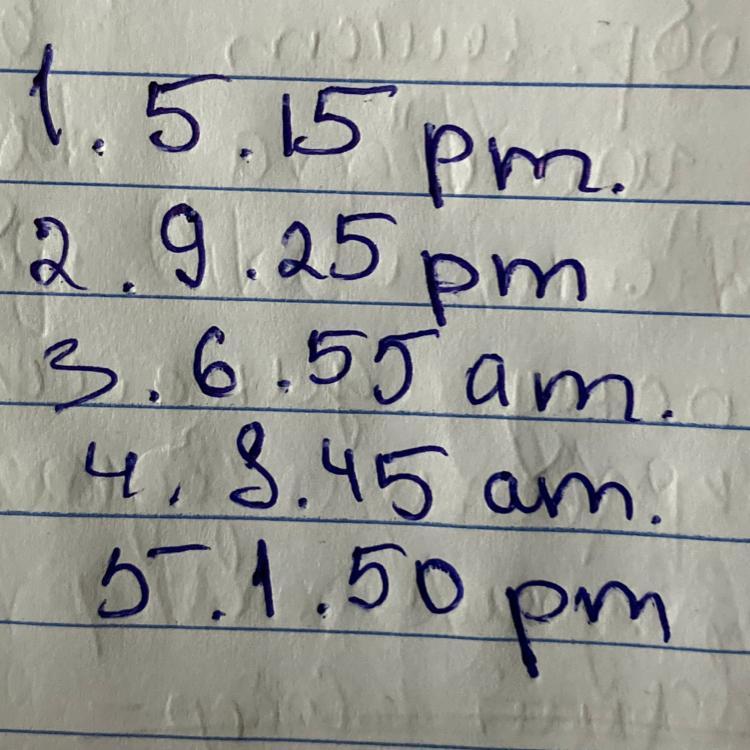 1. 5.15 pm.
2. 9.25 pm
3. 6.55 am.
4. 8.45 am.
5. 1.50 pm